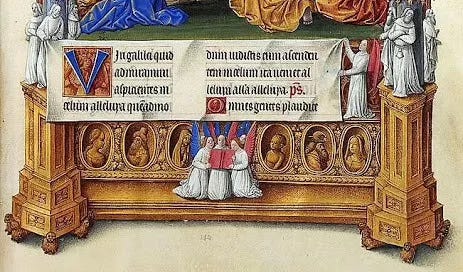 Viri galilei quid
admiramini
aspicientes in
celum alleluya quēadmo
dum uidistis eum ascenden
tem in celum ita ueniet al
alleluya. ps.
Omnes gentes plaudite